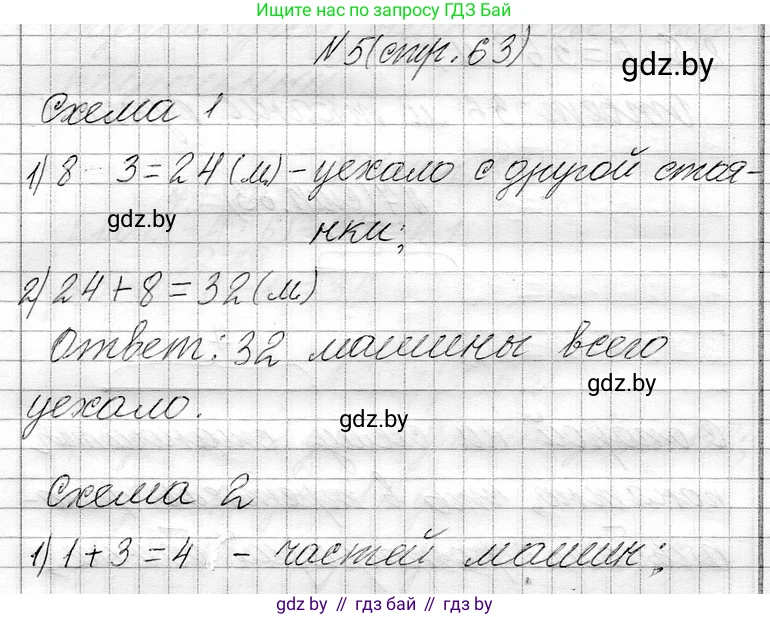 Ищите нас по запросу ГДЗ Бай
N 5 (стр. 63)
gdz.by
Схема 1
1) 8 3 = 24 (м) - уехало с другой стоя-
gdz.by
нки;
2) 24 + 8 = 32 (м)
Ответ: 32 машины всего
gdz.by
уехало.
gdz.by
Схема 2
1) 1 + 3 = 4 - частей машин;
gdz.by // гдз бай // гдз by